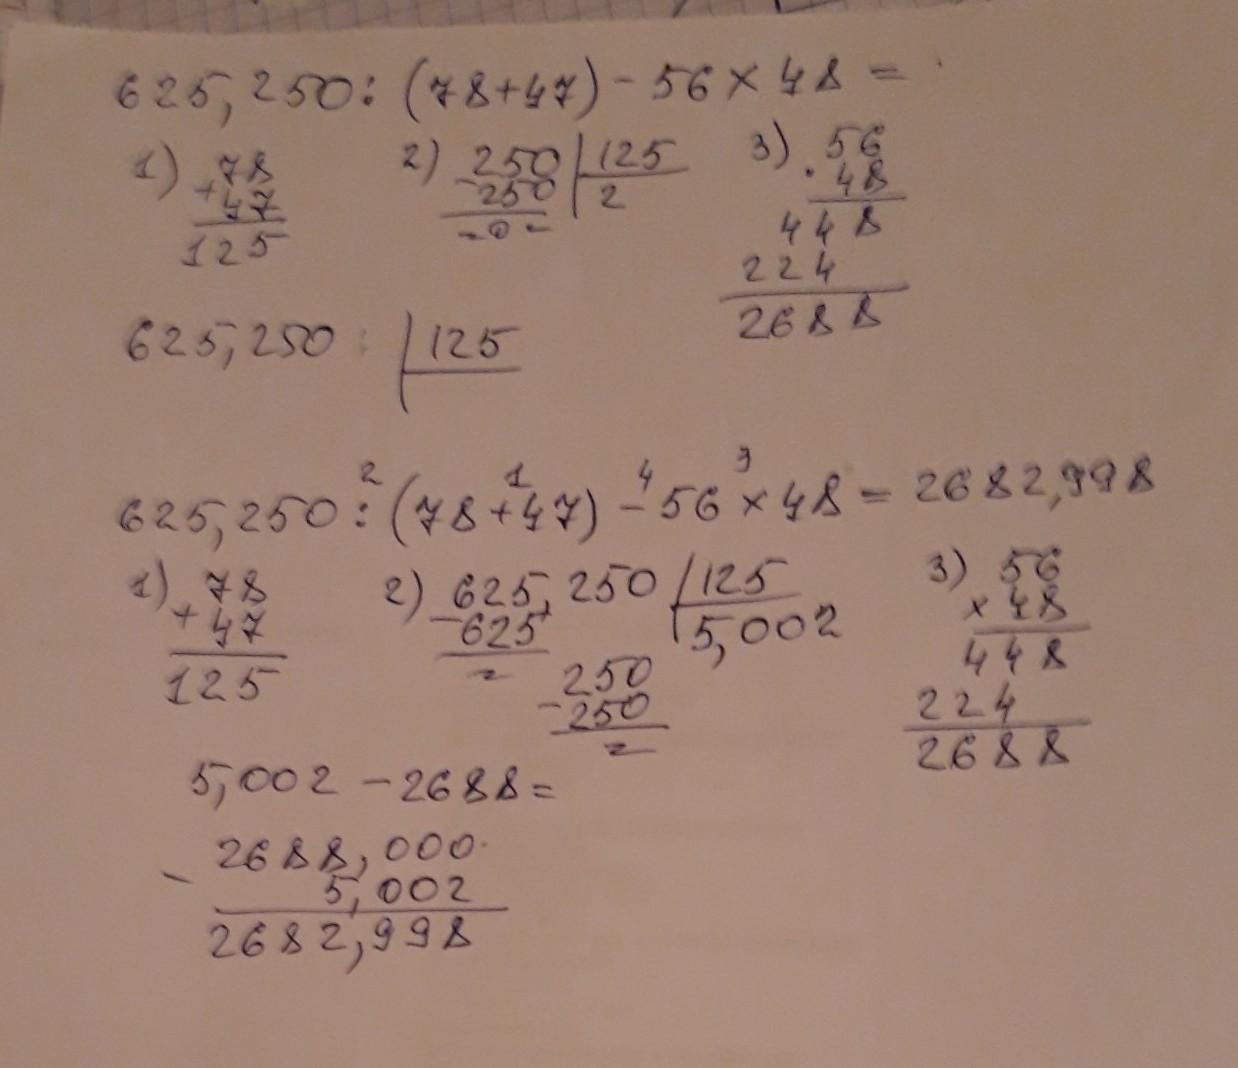 625,250 : (78+47) - 56 × 48 =
1) 78 2) 250 125 3) 56
+ 47 - 250 2 · 48
125 - 0 - 448
224
2688
625,250 : 125
2 1 4 3
625,250 : (78+47) - 56 × 48 = 2682,998
1) 78 2) 625,250 125 3) 56
+ 47 - 625 5,002 × 48
125 250 448
- 250 224
2688
5,002 - 2688 =
2688,000
- 5,002
2682,998